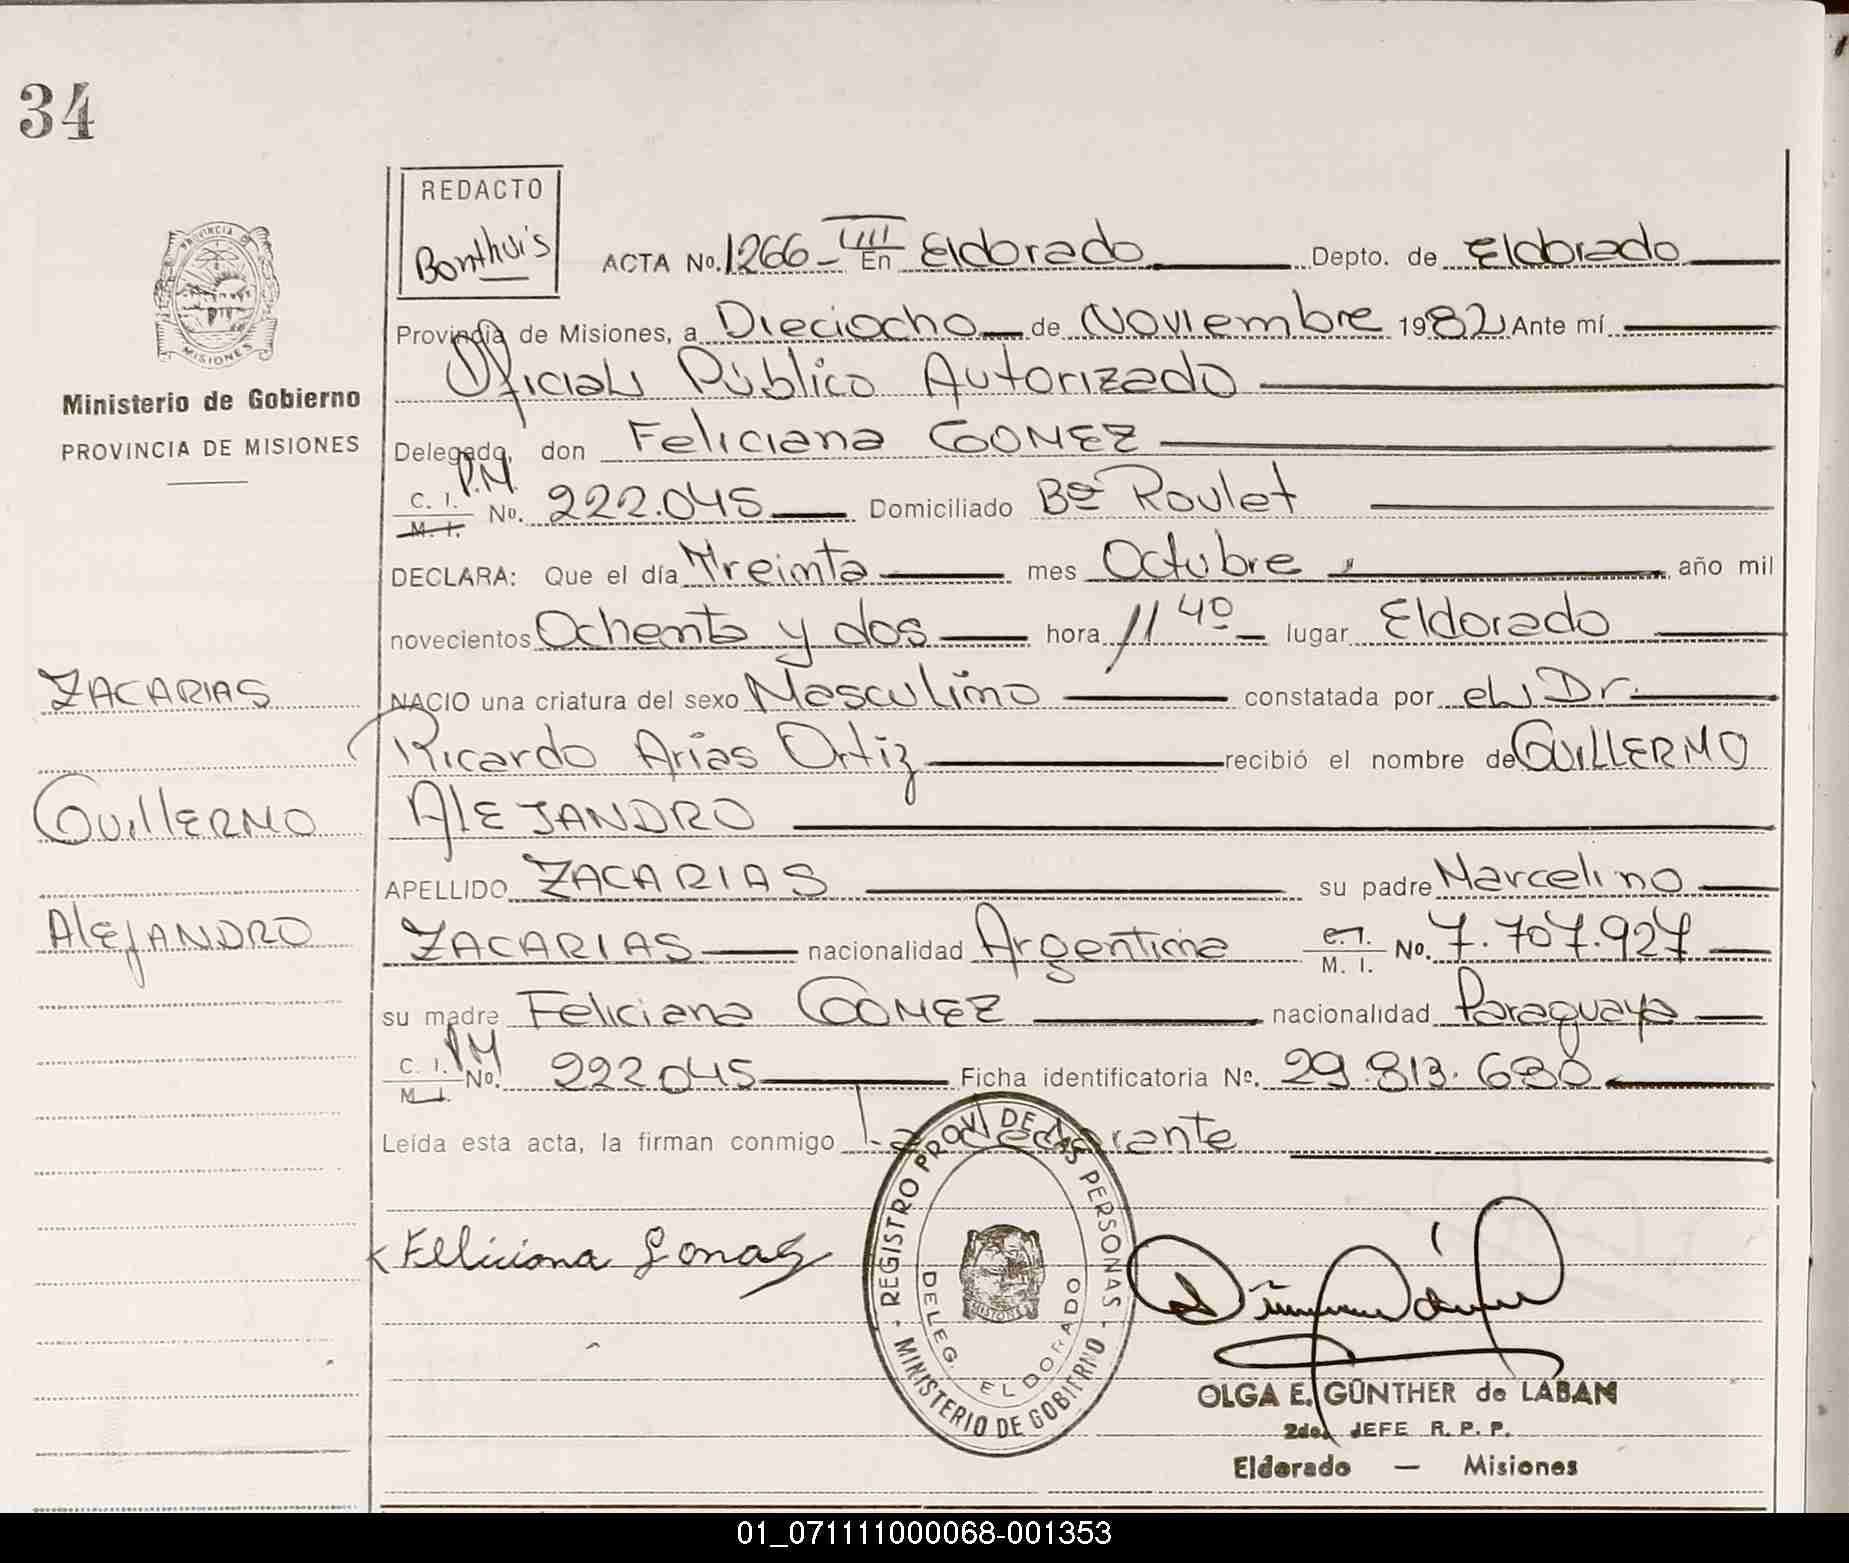 34
REDACTO
Bonthuis
PROVINCIA DE
MISIONES
Ministerio de Gobierno
PROVINCIA DE MISIONES
ACTA No. 1266- En Eldorado Depto. de Eldorado
Provincia de Misiones, a Dieciocho de Noviembre 1982 Ante mí
Oficial Público Autorizado
Delegado, don Feliciana GOMEZ
P.M.
C. I. M. I. No. 222.045 Domiciliado Bº Roulet
DECLARA: Que el día Treinta mes Octubre año mil
novecientos Ochenta y dos hora 11 40 lugar Eldorado
ZACARIAS
NACIO una criatura del sexo Masculino constatada por el Dr.
Ricardo Arias Ortiz recibió el nombre de GUILLERMO
GUILLERMO
ALEJANDRO
APELLIDO ZACARIAS su padre Marcelino
ALEJANDRO
ZACARIAS nacionalidad Argentina C. I. M. I. No. 7.707.927
su madre Feliciana GOMEZ nacionalidad Paraguaya
P.M.
C. I. M. I. No. 222045 Ficha identificatoria No. 29.813.680
Leída esta acta, la firman conmigo La declarante
Feliciana Gomez
- REGISTRO PROV. DE LAS PERSONAS -
MINISTERIO DE GOBIERNO
DELEG. ELDORADO
MISIONES
OLGA E. GÜNTHER de LABAN
2do. JEFE R. P. P.
Eldorado — Misiones
01_071111000068-001353